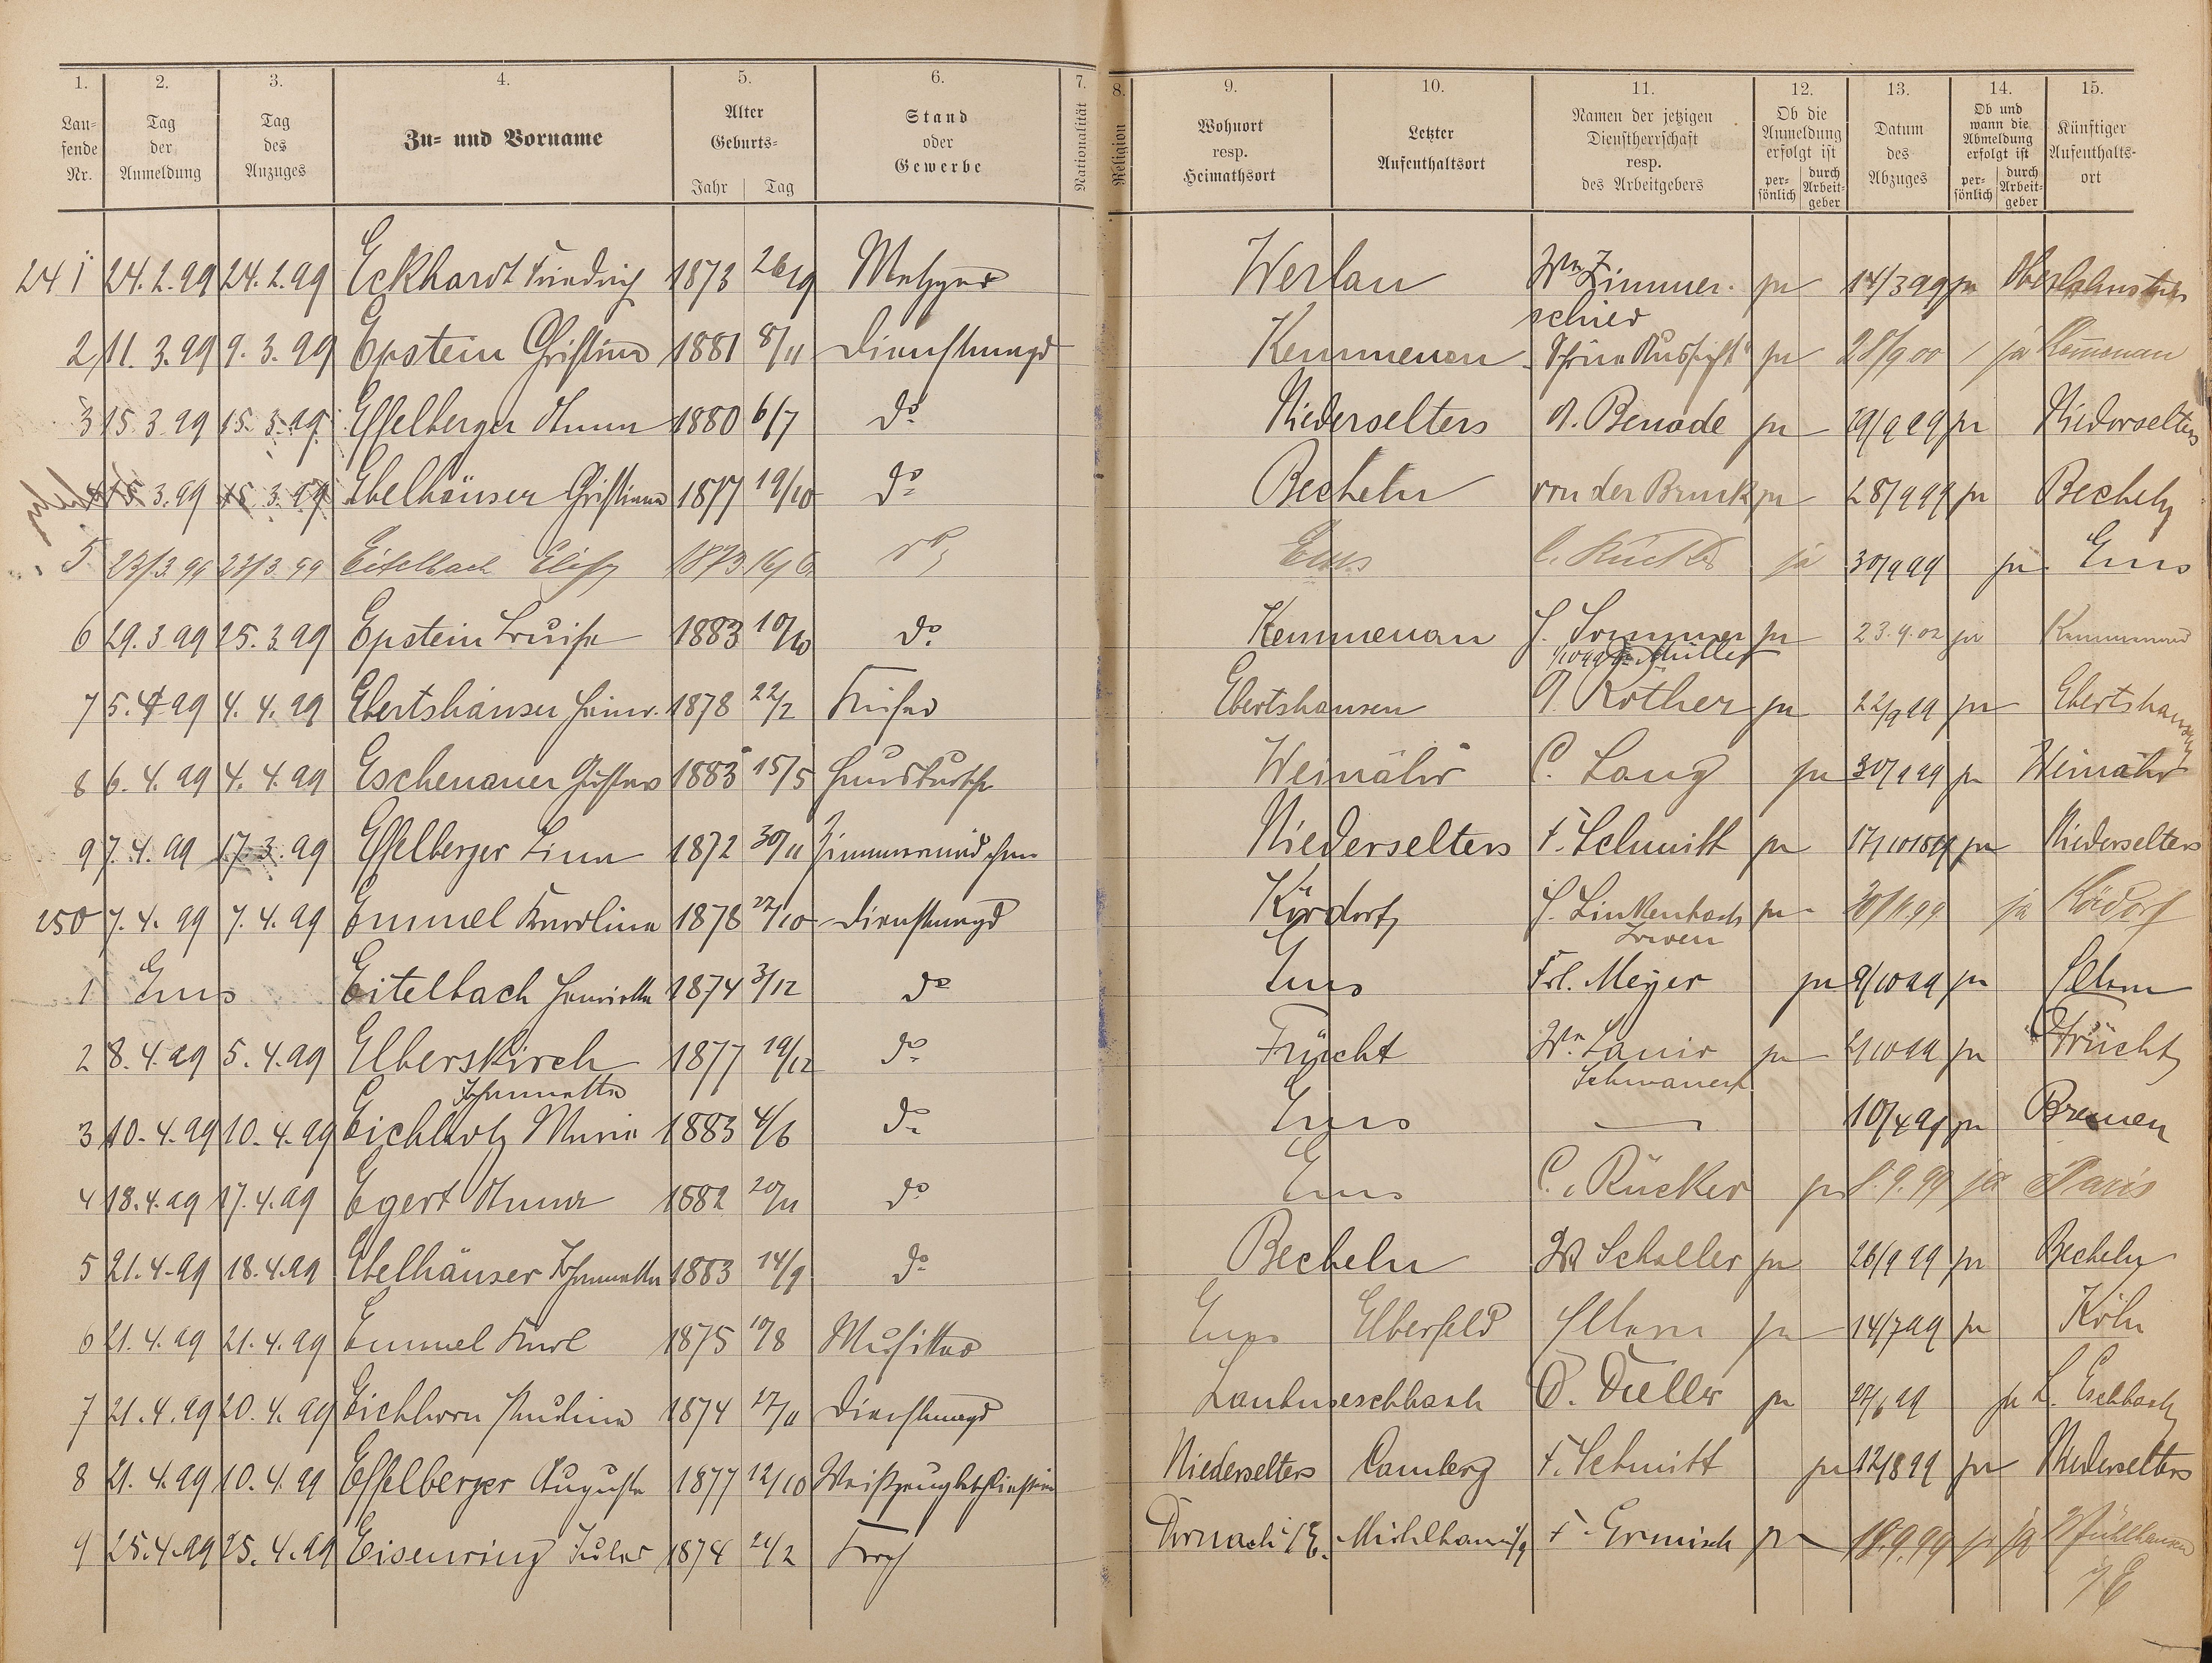 1. 2. 3. 4. 5. 6. 7. 8. 9. 10. 11. 12. 13. 14. 15.
Lau-
fende
Nr.
Tag
der
Anmeldung
Tag
des
Anzuges
Zu- und Vorname
Alter
Geburts-
Jahr Tag
Stand
oder
Gewerbe
Nationalität
Religion
Wohnort
resp.
Heimathsort
Letzter
Aufenthaltsort
Namen der jetzigen
Dienstherrschaft
resp.
des Arbeitgebers
Ob die
Anmeldung
erfolgt ist
per-
sönlich
durch
Arbeit-
geber
Datum
des
Abzuges
Ob und
wann die
Abmeldung
erfolgt ist
per-
sönlich
durch
Arbeit-
geber
Künftiger
Aufenthalts-
ort
241 24.2.99 24.2.99 Eckhardt Friedrich 1873 26/9 Metzger Werlau Wn Zimmer- ja 14/3 99 ja Oberlahnstein
schied
2 11.3.99 9.3.99 Epstein Christine 1881 8/11 Dienstmagd Kemmenau ja 28/9 00 ja Kemenau
3 15.3.99 15.3.99 Esselberger Anna 1880 6/7 do Niederselters A. Benade ja 29/9 99 ja Niederselters
4 15.3.99 15.3.99 Ebelhäuser Christiane 1877 19/10 do Becheln von der Bruck ja 28/9 99 ja Becheln
5 23/3 99 23/3 99 Eitelbach Elise 1873 16/6 do Ems C. Rücker ja 30/9 99 ja Ems
6 29.3.99 25.3.99 Epstein Luise 1883 10/10 do Kemmenau J. Sommer ja 23.9.02 ja Kemmenau
Müller
7 5.4.99 4.4.99 Ebertshäuser Heinr. 1878 22/2 Küfer Ebertshausen A. Rother ja 22/9 99 ja Ebertshausen
8 6.4.99 4.4.99 Eschenauer Gustav 1883 15/5 Hausbursche Weinähr C. Lang ja 30/9 99 ja Weinähr
9 7.4.99 17.3.99 Esselberger Lina 1872 30/11 Zimmermädchen Niederselters F. Schmitt ja 17/10 1899 ja Niederselters
250 7.4.99 7.4.99 Emmel Karoline 1878 27/10 Dienstmagd Kördorf J. Linkenbach ja 30/11 99 ja Kördorf
Löwen
1 Ems Eitelbach Henriette 1874 3/12 do Ems Frl. Meyer ja 9/10 99 ja Eltern
2 8.4.99 5.4.99 Elberskirch 1877 19/12 do Frücht Wn. Lanio ja 2/10 99 ja Frücht
Johannette Schwaneck
3 10.4.99 10.4.99 Eichholz Maria 1883 4/6 do Ems — 10/4 99 ja Bremen
4 18.4.99 17.4.99 Egert Anna 1882 20/11 do Ems C. Rücker ja 8.9.99 ja Paris
5 21.4.99 18.4.99 Ebelhäuser Johannette 1883 14/9 do Becheln W Schaller ja 26/9 99 ja Becheln
6 21.4.99 21.4.99 Emmel Karl 1875 10/8 Musiker Ems Elberfeld Eltern ja 14/7 99 ja Köln
7 21.4.99 20.4.99 Eichhorn Pauline 1874 17/11 Dienstmagd Laubuseschbach O. Düller ja 27/6 99 ja L. Eschbach
8 21.4.99 10.4.99 Esselberger Auguste 1877 12/10 Niederselters Camberg F. Schmitt ja 12/8 99 ja Niederselters
9 25.4.99 25.4.99 Eisenring Jules 1874 21/2 Koch Dornach i/E. F. Ermisch ja 18.9.99 ja Mühlhausen
i/E